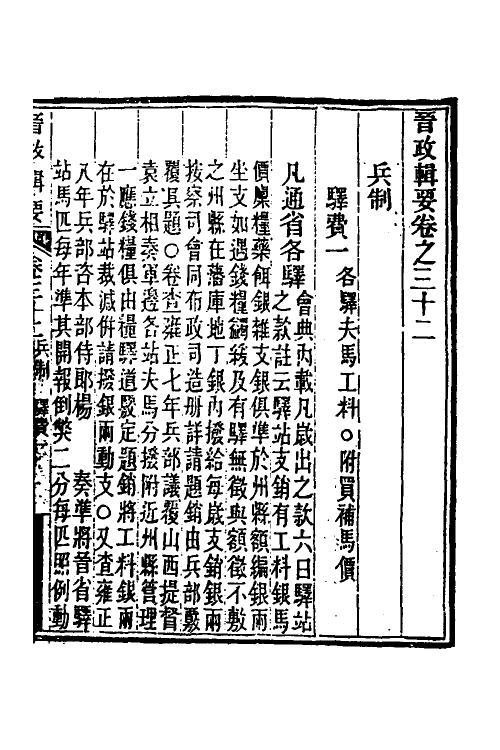 晉政輯要卷之三十二
兵制
驛費一 各驛夫馬工料○附買補馬價
凡通省各驛
會典內載凡歲出之款六曰驛站
之款註云驛站支銷有工料銀馬
價稟糧藥餌銀雜支銀俱準於州縣額編銀兩
坐支如遇錢糧蠲緩及有驛無徵與額徵不敷
之州縣在藩庫地丁銀內撥給每歲支銷銀兩
按察司會同布政司造册詳請題銷由兵部覈
覆具題○卷查雍正七年兵部議覆山西提督
袁立相奏軍邊各站夫馬分撥附近州縣管理
一應錢糧俱由糧驛道覈定題銷將工料銀兩
在於驛站裁減倂請撥銀兩動支○又查雍正
八年兵部咨本部侍郎楊 奏準將晉省驛
站馬匹每年準其開報倒斃二分每匹照例動
晉政輯要 卷三十二兵制 驛費一